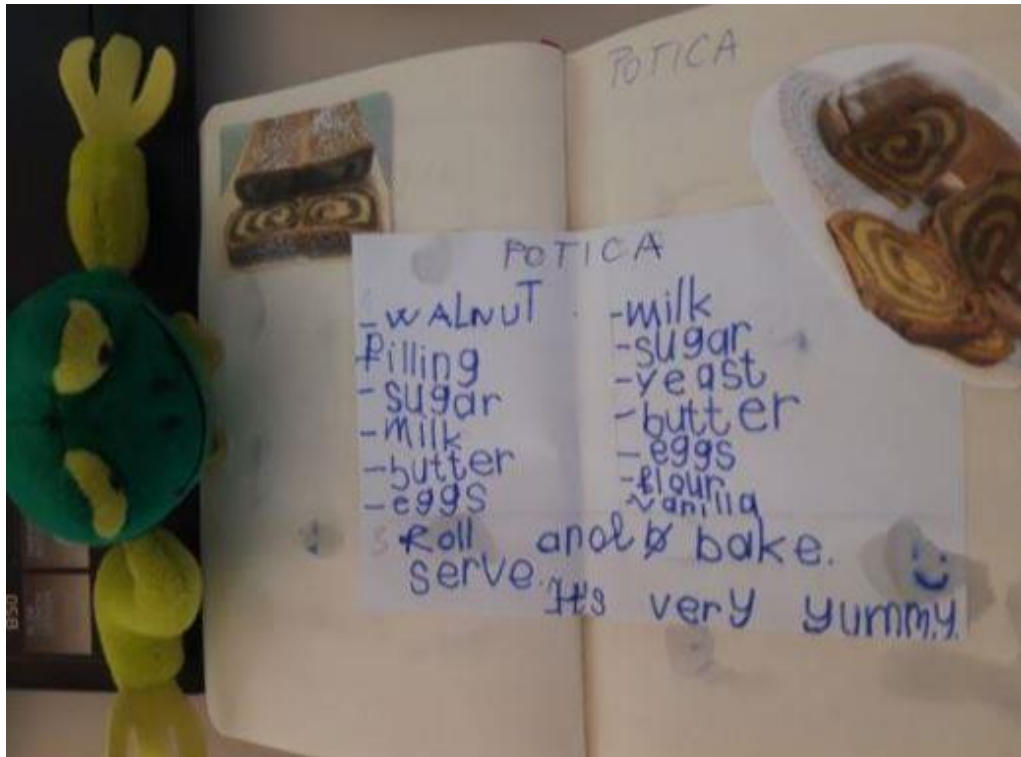 POTICA
POTICA
- WALNUT
Filling
- sugar
- Milk
- butter
- eggs
- milk
- sugar
- yeast
- butter
- eggs
- flour
~ vanilla
Roll and bake.
serve.
It's very yummy.